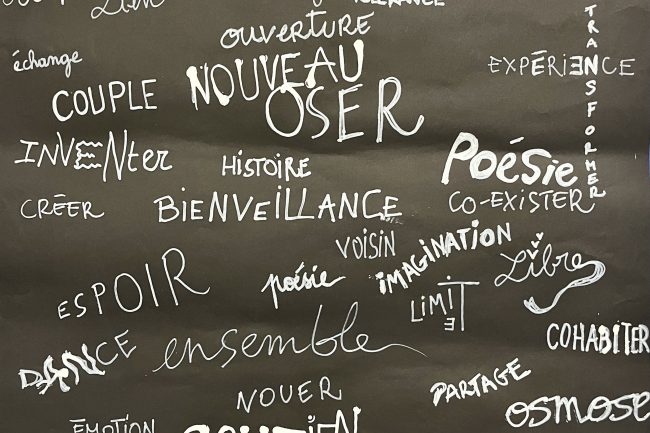 Lien
TOLÉRANCE
OUVERTURE
échange
NOUVEAU
EXPÉRIENCE
TRANSFORMER
COUPLE
OSER
INVENter
HISTOIRE
Poésie
CRÉER
BIENVEILLANCE
CO-EXISTER
VOISIN
IMAGINATION
Libre
ESPOIR
poésie
LIMITE
DANCE
ensemble
COHABITER
NOUER
PARTAGE
OSMOSE
ÉMOTION